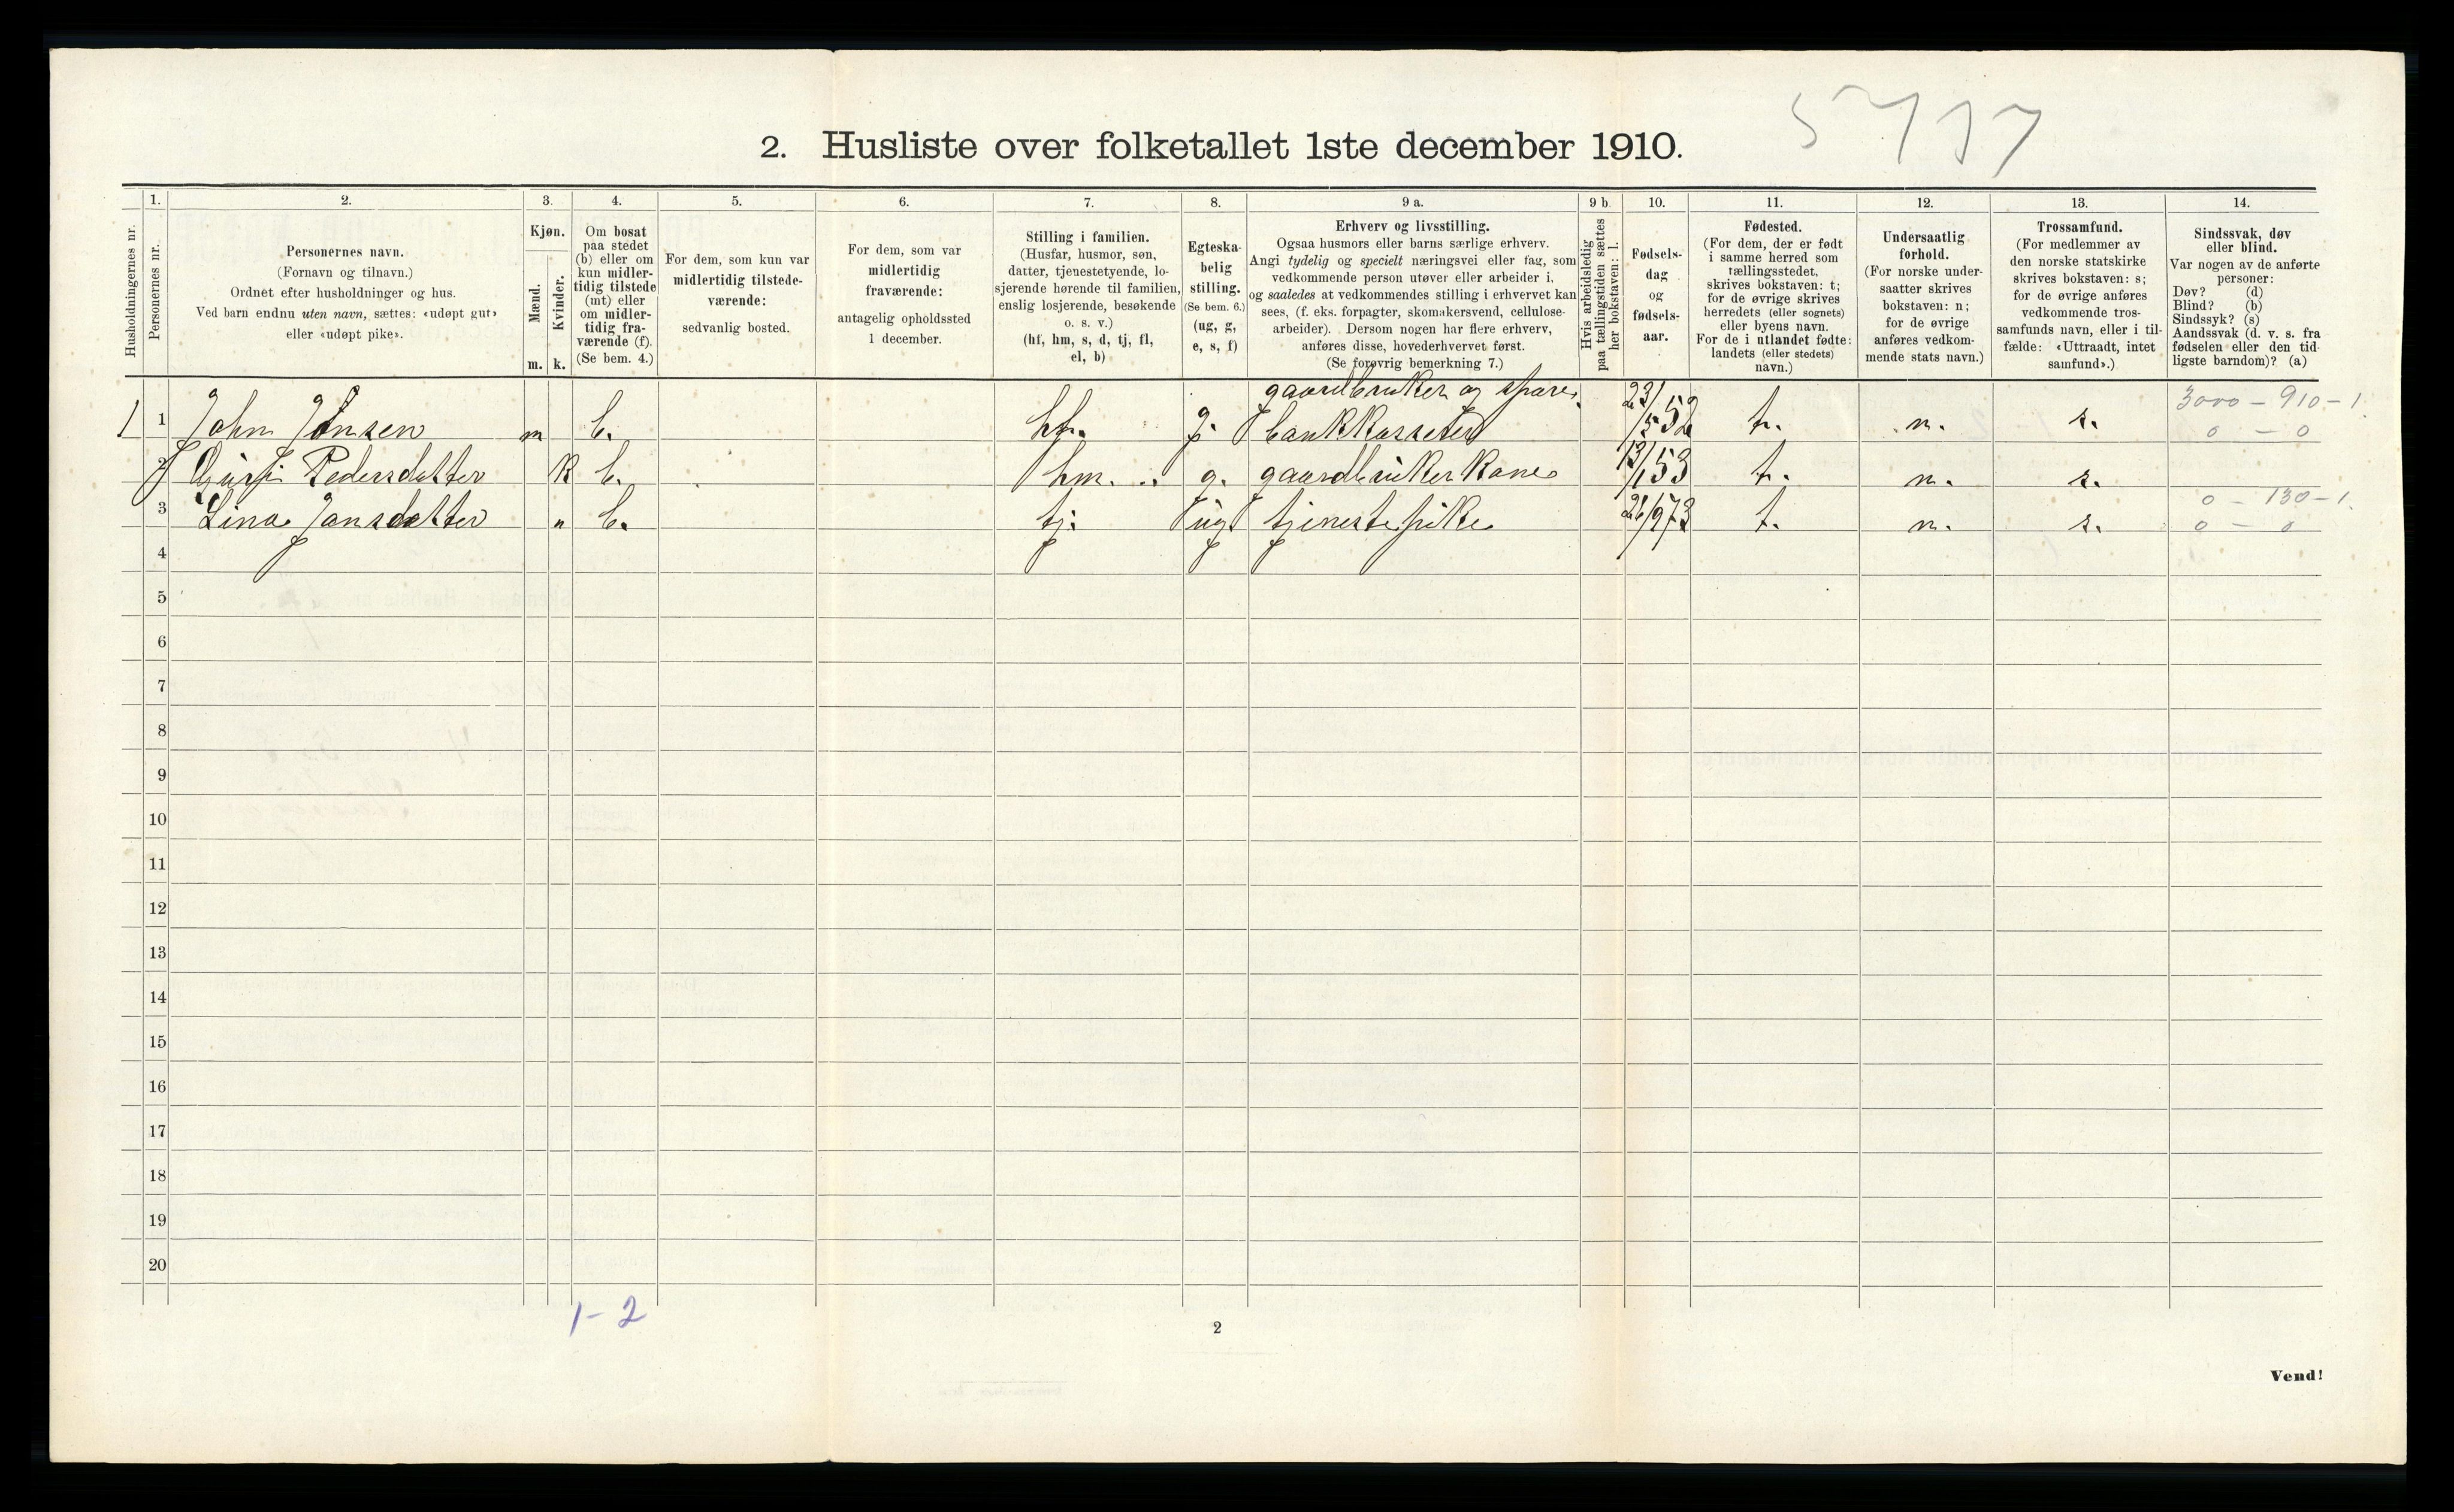 2. Husliste over folketallet 1ste december 1910.
1. 2. 3. 4. 5. 6. 7. 8. 9 a. 9 b. 10. 11. 12. 13. 14.
Husholdningernes nr.
Personernes nr.
Personernes navn.
(Fornavn og tilnavn.)
Ordnet efter husholdninger og hus.
Ved barn endnu uten navn, sættes: «udøpt gut»
eller «udøpt pike».
Kjøn.
Mænd.
Kvinder.
m. k.
Om bosat
paa stedet
(b) eller om
kun midler-
tidig tilstede
(mt) eller
om midler-
tidig fra-
værende (f).
(Se bem. 4.)
For dem, som kun var
midlertidig tilstede-
værende:
sedvanlig bosted.
For dem, som var
midlertidig
fraværende:
antagelig opholdssted
1 december.
Stilling i familien.
(Husfar, husmor, søn,
datter, tjenestetyende, lo-
sjerende hørende til familien,
enslig losjerende, besøkende
o. s. v.)
(hf, hm, s, d, tj, fl,
el, b)
Egteska-
belig
stilling.
(Se bem. 6.)
(ug, g,
e, s, f)
Erhverv og livsstilling.
Ogsaa husmors eller barns særlige erhverv.
Angi tydelig og specielt næringsvei eller fag, som
vedkommende person utøver eller arbeider i,
og saaledes at vedkommendes stilling i erhvervet kan
sees, (f. eks. forpagter, skomakersvend, cellulose-
arbeider). Dersom nogen har flere erhverv,
anføres disse, hovederhvervet først.
(Se forøvrig bemerkning 7.)
Hvis arbeidsledig
paa tællingstiden sættes
her bokstaven: l.
Fødsels-
dag
og
fødsels-
aar.
Fødested.
(For dem, der er født
i samme herred som
tællingsstedet,
skrives bokstaven: t;
for de øvrige skrives
herredets (eller sognets)
eller byens navn.
For de i utlandet fødte:
landets (eller stedets)
navn.)
Undersaatlig
forhold.
(For norske under-
saatter skrives
bokstaven: n;
for de øvrige
anføres vedkom-
mende stats navn.)
Trossamfund.
(For medlemmer av
den norske statskirke
skrives bokstaven: s;
for de øvrige anføres
vedkommende tros-
samfunds navn, eller i til-
fælde: «Uttraadt, intet
samfund».)
Sindssvak, døv
eller blind.
Var nogen av de anførte
personer:
Døv? (d)
Blind? (b)
Sindssyk? (s)
Aandssvak (d. v. s. fra
fødselen eller den tid-
ligste barndom)? (a)
gaardbruker og spare- 3000 - 910 - 1.
1 1 John Jonsen m b. hf. g. bankkasserer t. n. s. 0 - 0
2 Pedersdatter k b. hm. g. gaardbrukerkone 13/1 53 t. n. s.
0 - 130 - 1.
3 Lina Jansdatter " b. tj. ug. tjenestepike 26/9 73 t. n. s. 0 - 0
4
5
6
7
8
9
10
11
12
13
14
15
16
17
18
19
20
1 - 2
2
Vend!